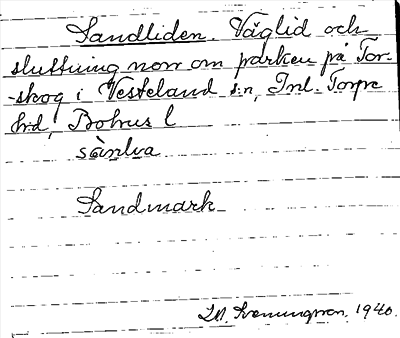 Sandliden. Väglid och
sluttning norr om parken på Tor-
-skog i Vesteland s:n, Inl. Torpe
h:d, Bohus l
sànlɩva
Sandmark
1940.